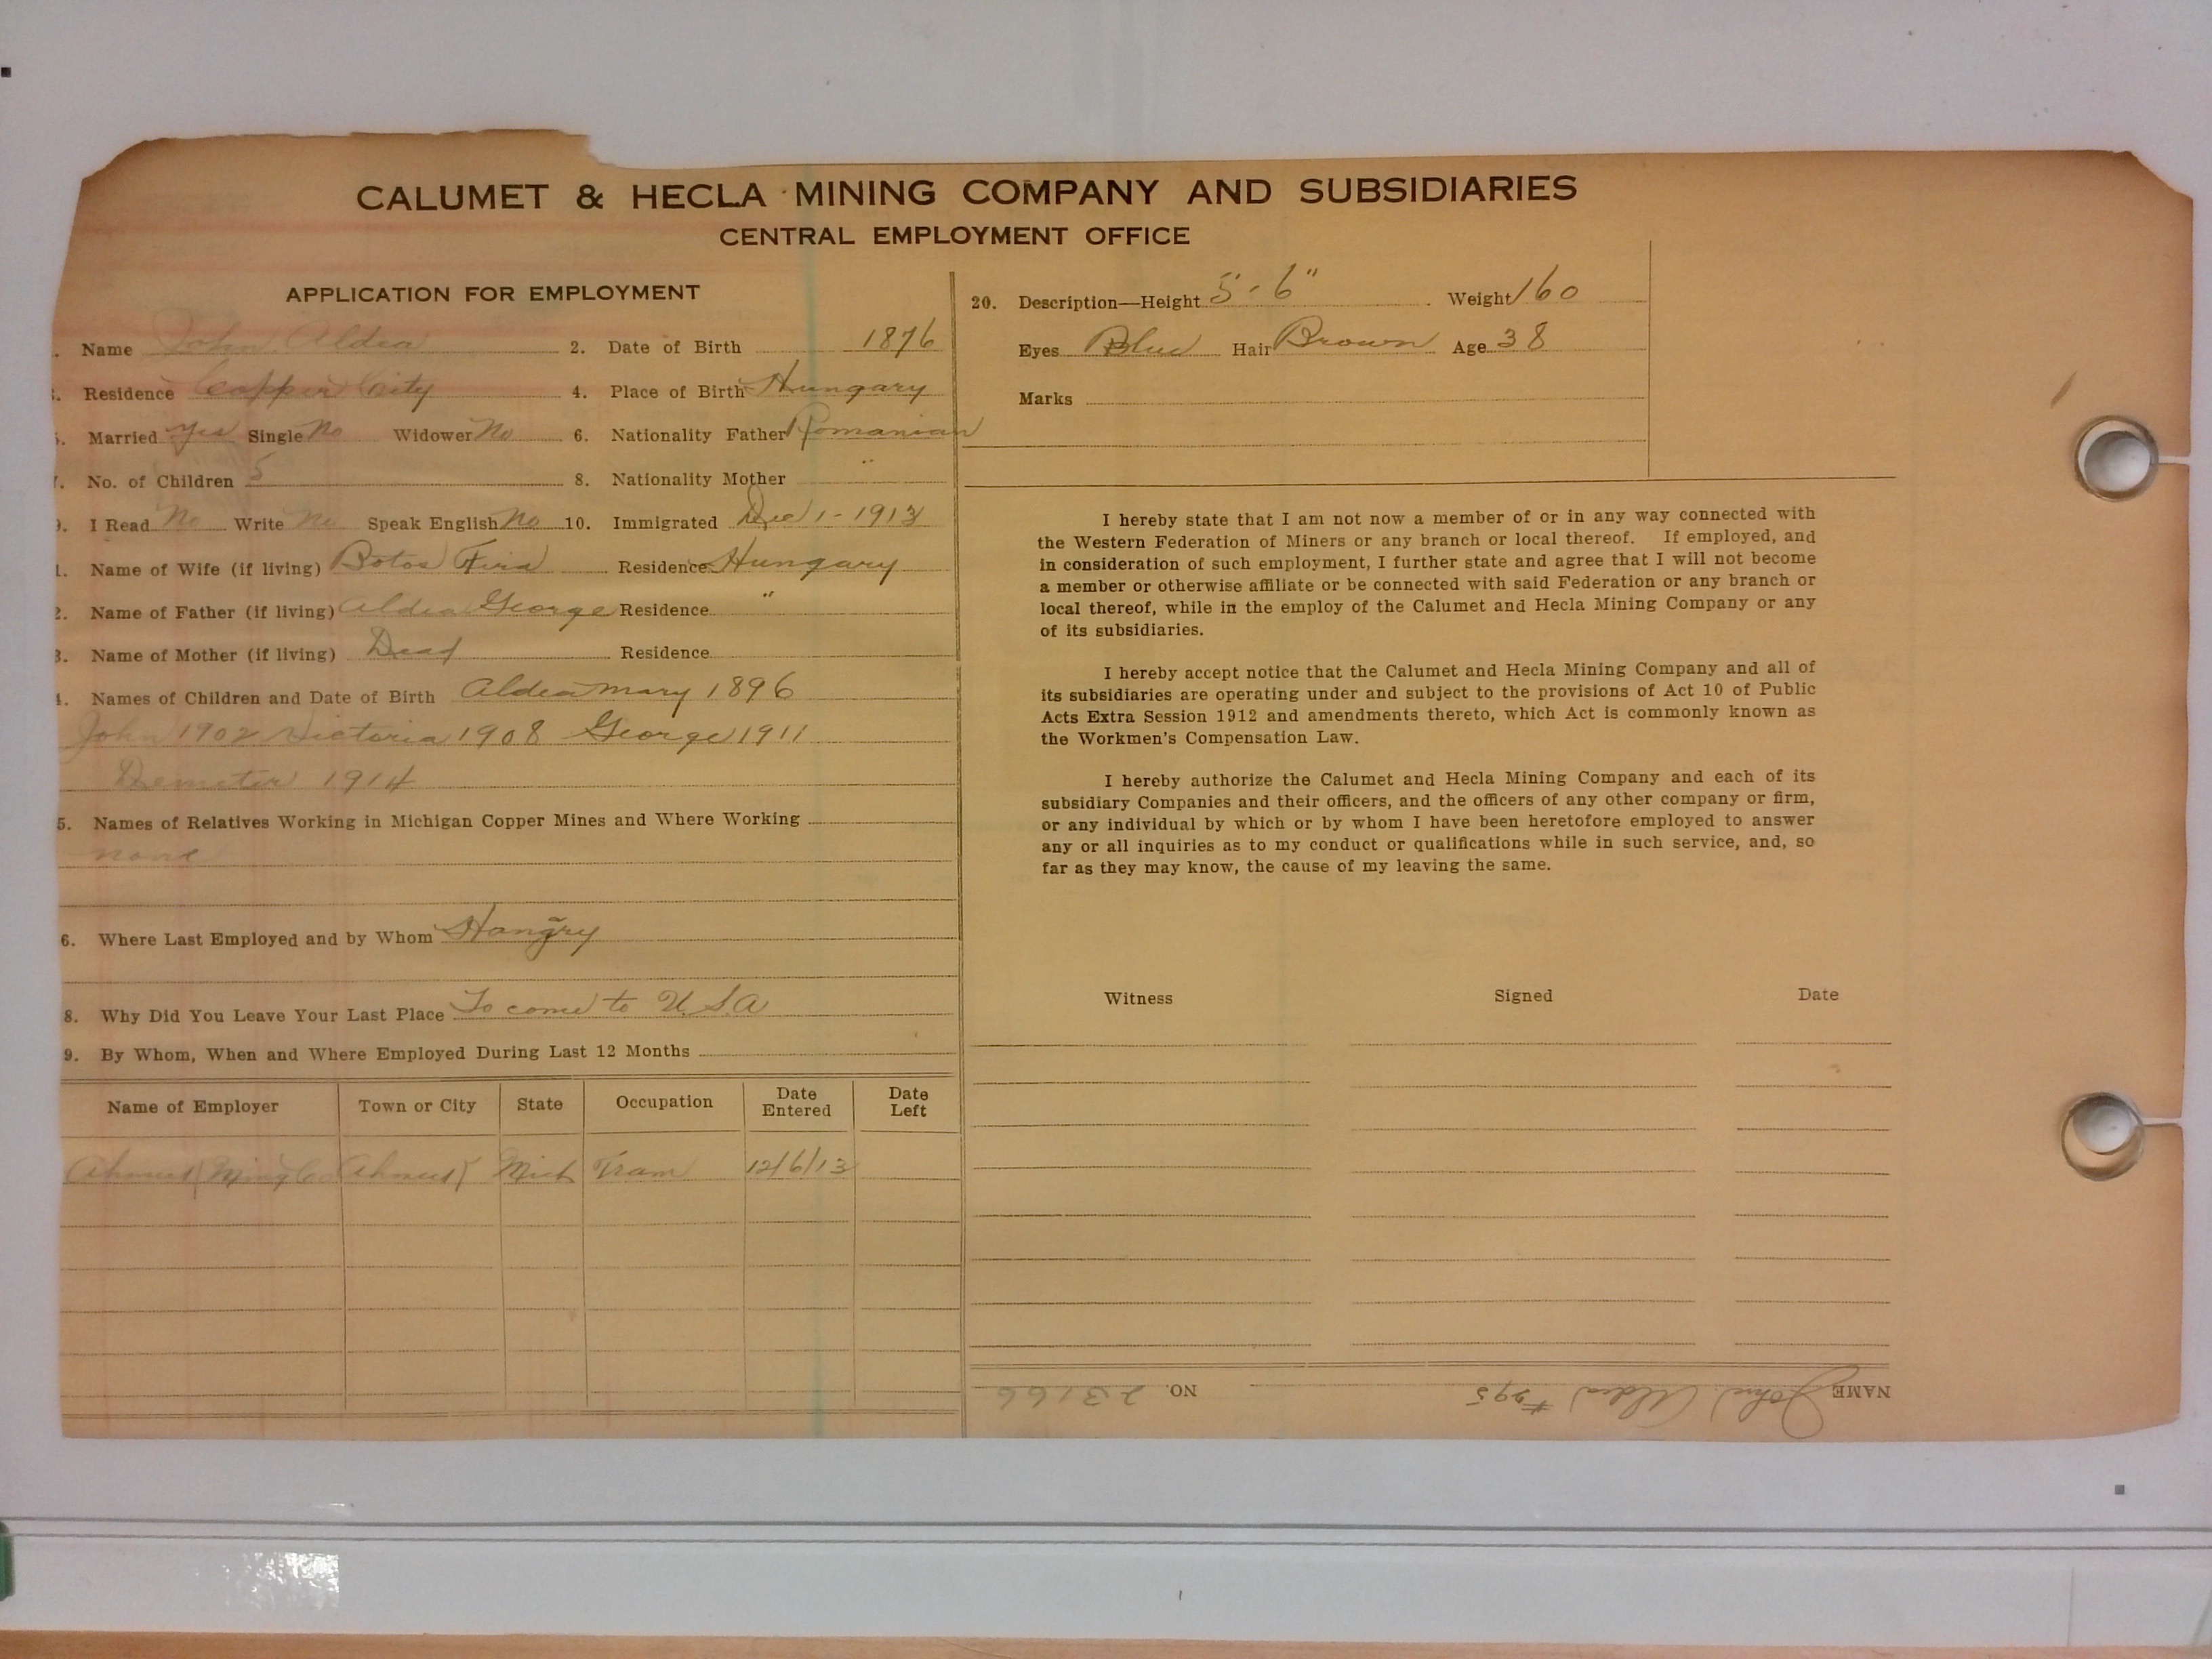 CALUMET & HECLA MINING COMPANY AND SUBSIDIARIES
CENTRAL EMPLOYMENT OFFICE
APPLICATION FOR EMPLOYMENT
. Name John Aldea 2. Date of Birth 1876
. Residence Copper City 4. Place of Birth Hungary
. Married Yes Single No Widower No 6. Nationality Father Romanian
. No. of Children 5 8. Nationality Mother "
. I Read No Write No Speak English No 10. Immigrated Dec 1 - 1913
. Name of Wife (if living) Botos Residence Hungary
2. Name of Father (if living) Aldea George Residence "
3. Name of Mother (if living) Dead Residence
. Names of Children and Date of Birth Aldea Mary 1896
John 1902 Victoria 1908 George 1911
Demeter 1914
5. Names of Relatives Working in Michigan Copper Mines and Where Working
none
6. Where Last Employed and by Whom Hangry
8. Why Did You Leave Your Last Place To come to U.S.A
9. By Whom, When and Where Employed During Last 12 Months
Name of Employer Town or City State Occupation Date Entered Date Left
Ahmeek Ming Co Ahmeek Mich Tram 12/6/13
20. Description—Height 5'-6" Weight 160
Eyes Blue Hair Brown Age 38
Marks
I hereby state that I am not now a member of or in any way connected with
the Western Federation of Miners or any branch or local thereof. If employed, and
in consideration of such employment, I further state and agree that I will not become
a member or otherwise affiliate or be connected with said Federation or any branch or
local thereof, while in the employ of the Calumet and Hecla Mining Company or any
of its subsidiaries.
I hereby accept notice that the Calumet and Hecla Mining Company and all of
its subsidiaries are operating under and subject to the provisions of Act 10 of Public
Acts Extra Session 1912 and amendments thereto, which Act is commonly known as
the Workmen's Compensation Law.
I hereby authorize the Calumet and Hecla Mining Company and each of its
subsidiary Companies and their officers, and the officers of any other company or firm,
or any individual by which or by whom I have been heretofore employed to answer
any or all inquiries as to my conduct or qualifications while in such service, and, so
far as they may know, the cause of my leaving the same.
Witness Signed Date
NAME John Aldea #295 NO. 23166